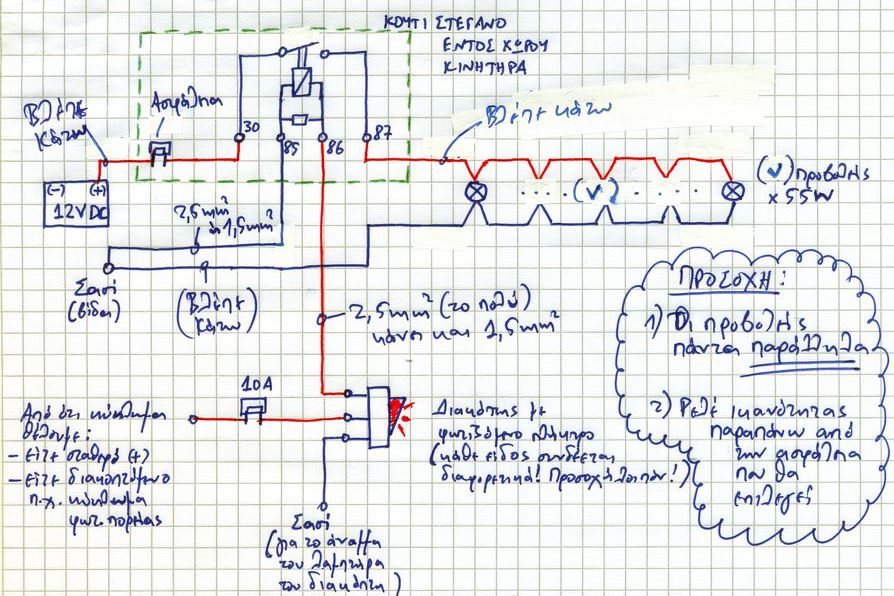 ΚΟΥΤΙ ΣΤΕΓΑΝΟ
ΕΝΤΟΣ ΧΩΡΟΥ
ΚΙΝΗΤΗΡΑ
Βλέπε
κάτω
Ασφάλεια
30
85
86
87
Βλέπε κάτω
(-) (+)
12V DC
(ν)
(ν) προβολείς
x 55W
2,5mm²
ή 1,5mm²
Σασί
(βίδα)
(Βλέπε
κάτω)
2,5mm² (το πολύ)
κάνει και 1,5mm²
ΠΡΟΣΟΧΗ:
1) Οι προβολείς
πάντα παράλληλα
2) Ρελέ ικανότητας
παραπάνω από
την ασφάλεια
που θα
επιλεγεί
10A
Από ότι κύκλωμα
θέλουμε:
- είτε σταθερό (+)
- είτε διακοπτόμενο
π.χ. κύκλωμα
φωτ. πορείας
Διακόπτης με
φωτιζόμενο πλήκτρο
(κάθε είδος συνδέεται
διαφορετικά! Προσοχή λοιπόν!)
Σασί
(για το άναμμα
του λαμπτήρα
του διακόπτη)